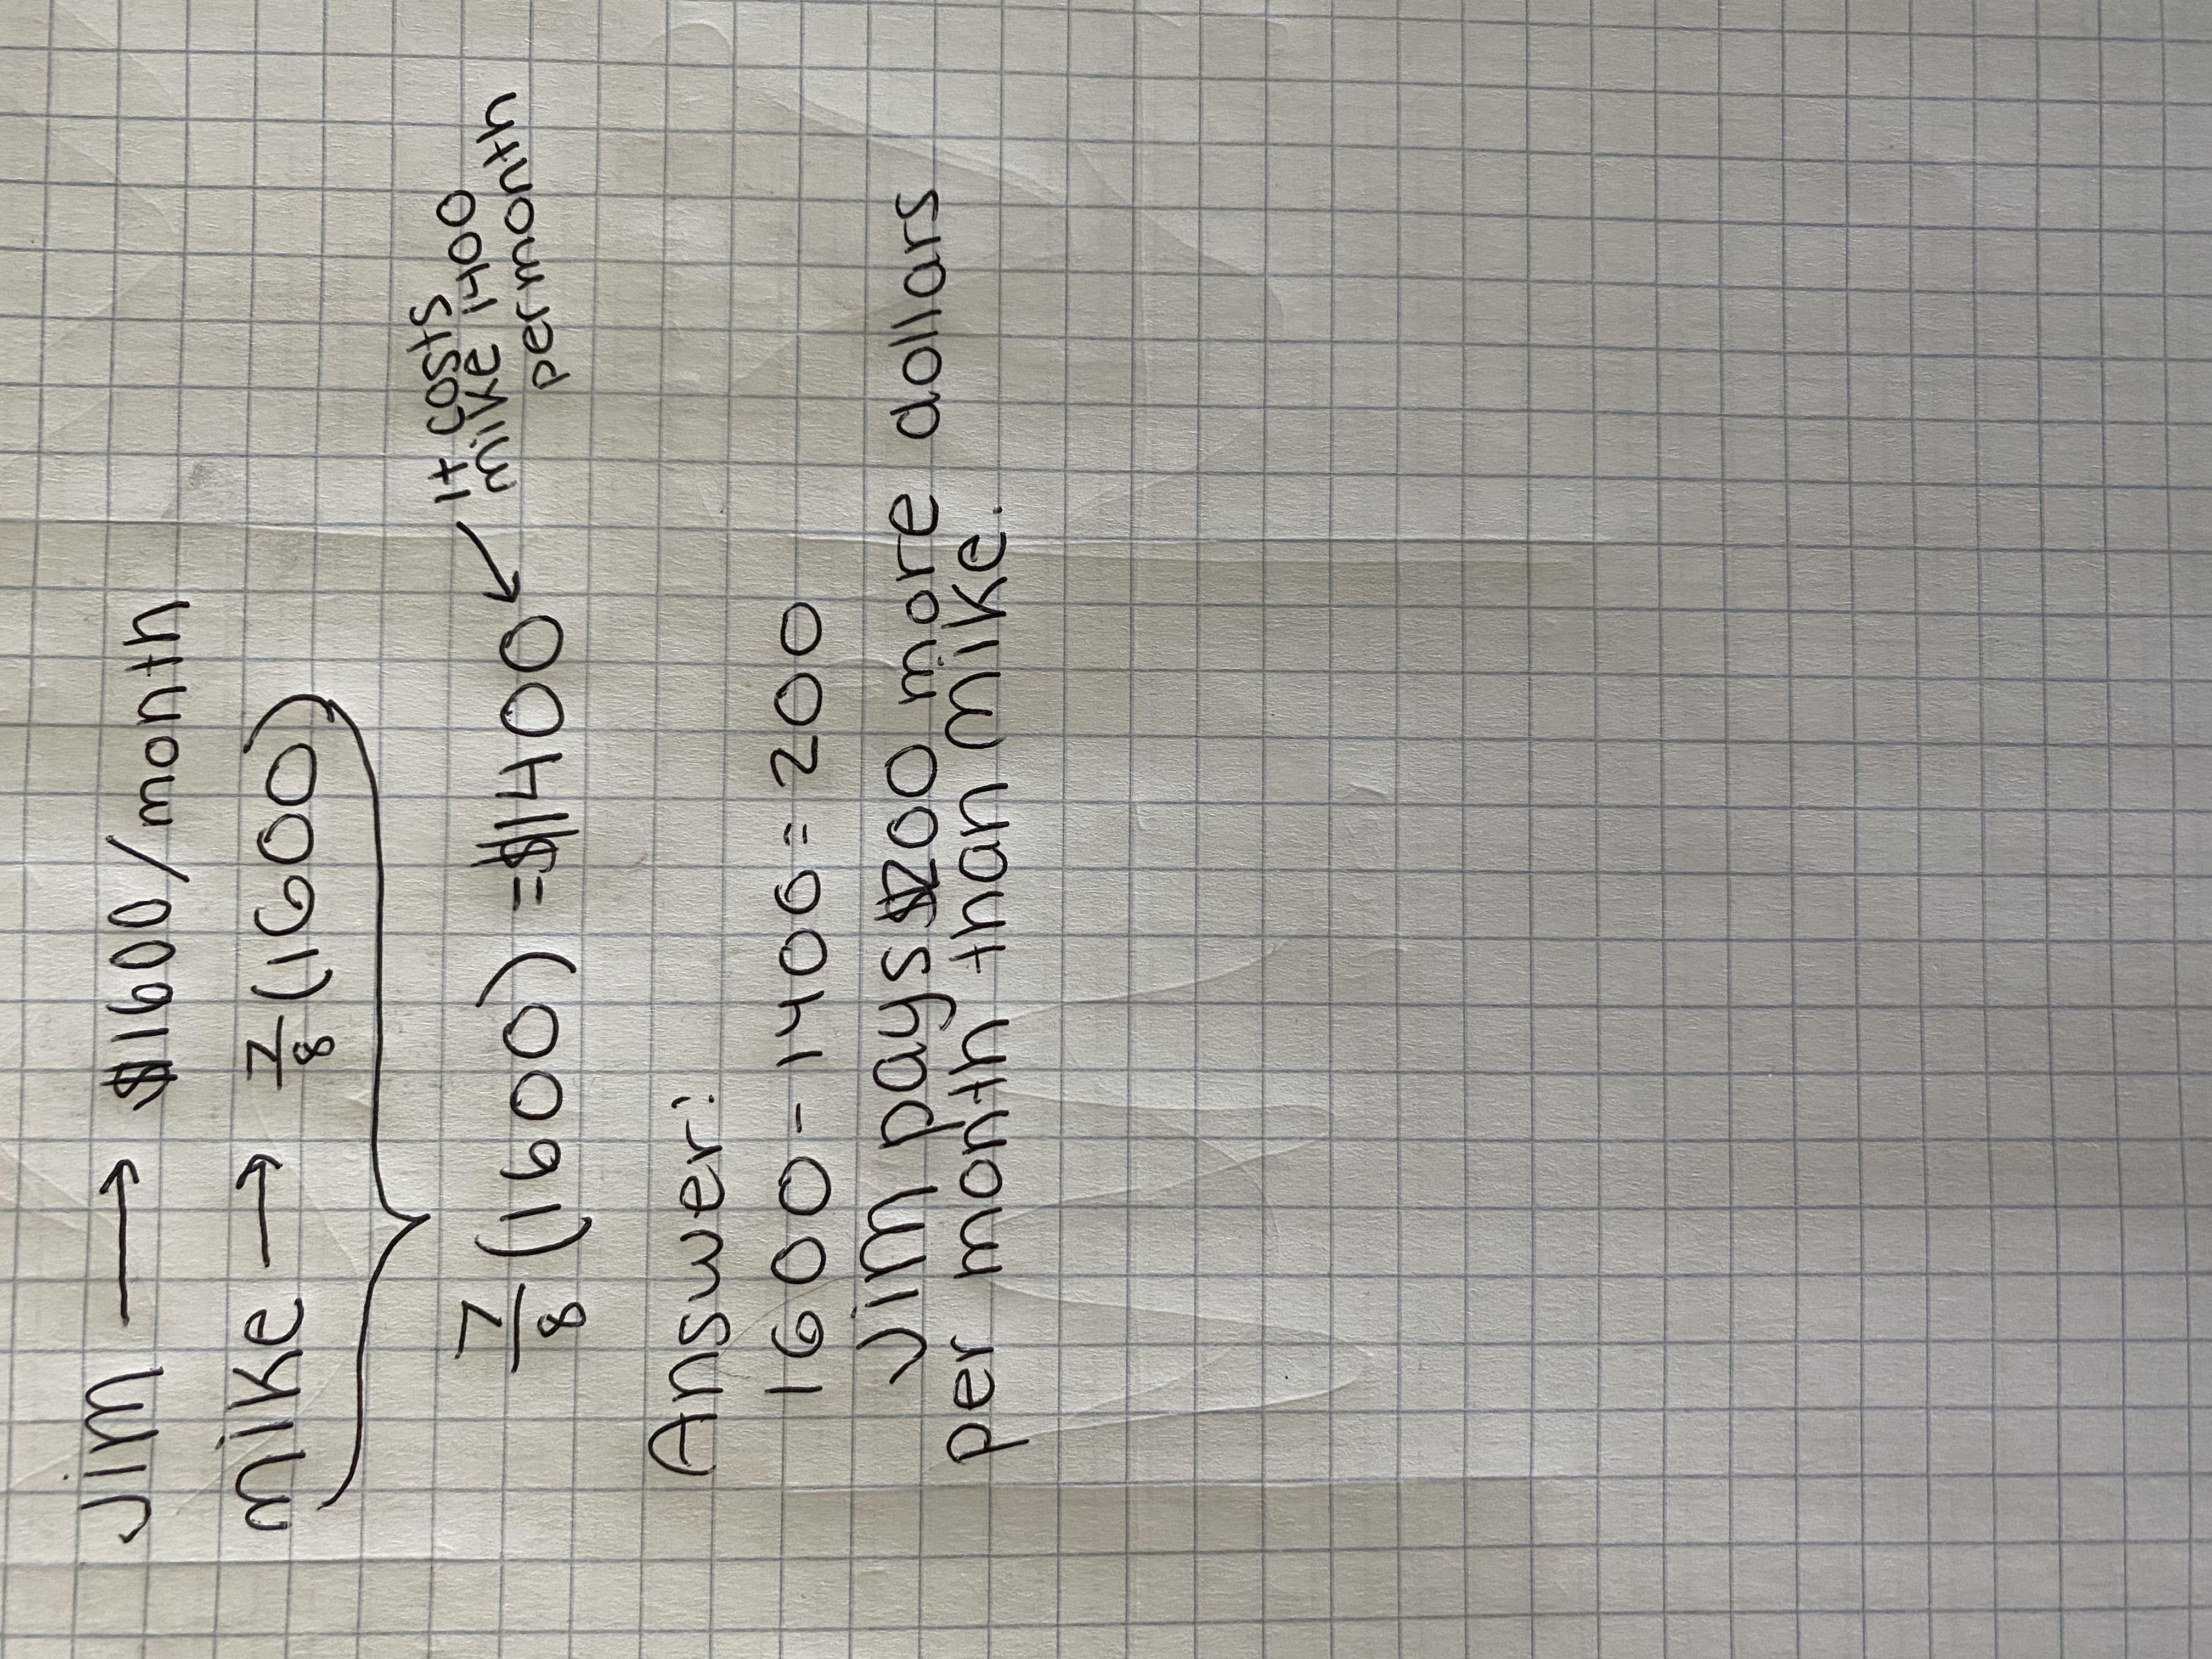 Jim → $1600/month
mike → 7/8 (1600)
7/8 (1600) = $1400 ← It costs
mike 1400
per month
Answer:
1600 - 1400 = 200
Jim pays $200 more dollars
per month than mike.